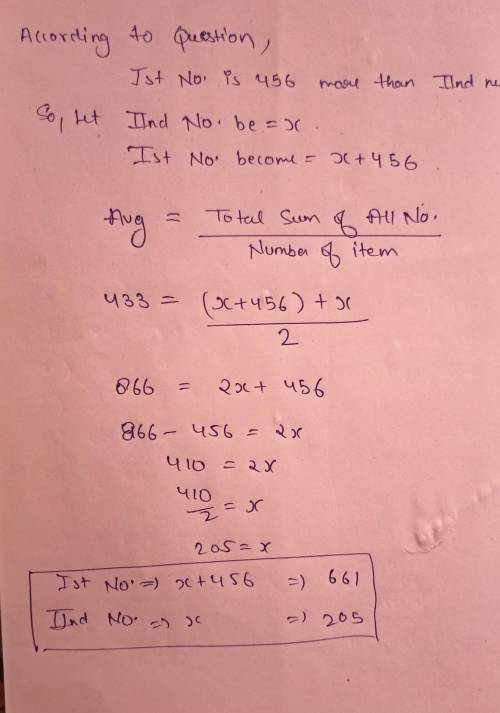 According to Question,
Ist No. is 456 more than IInd
So, Let IInd No. be = x.
Ist No. become = x+456
Avg = Total Sum of All No. / Number of item
433 = (x+456) + x / 2
866 = 2x + 456
866 - 456 = 2x
410 = 2x
410/2 = x
205 = x
Ist No. => x+456 => 661
IInd No. => x => 205